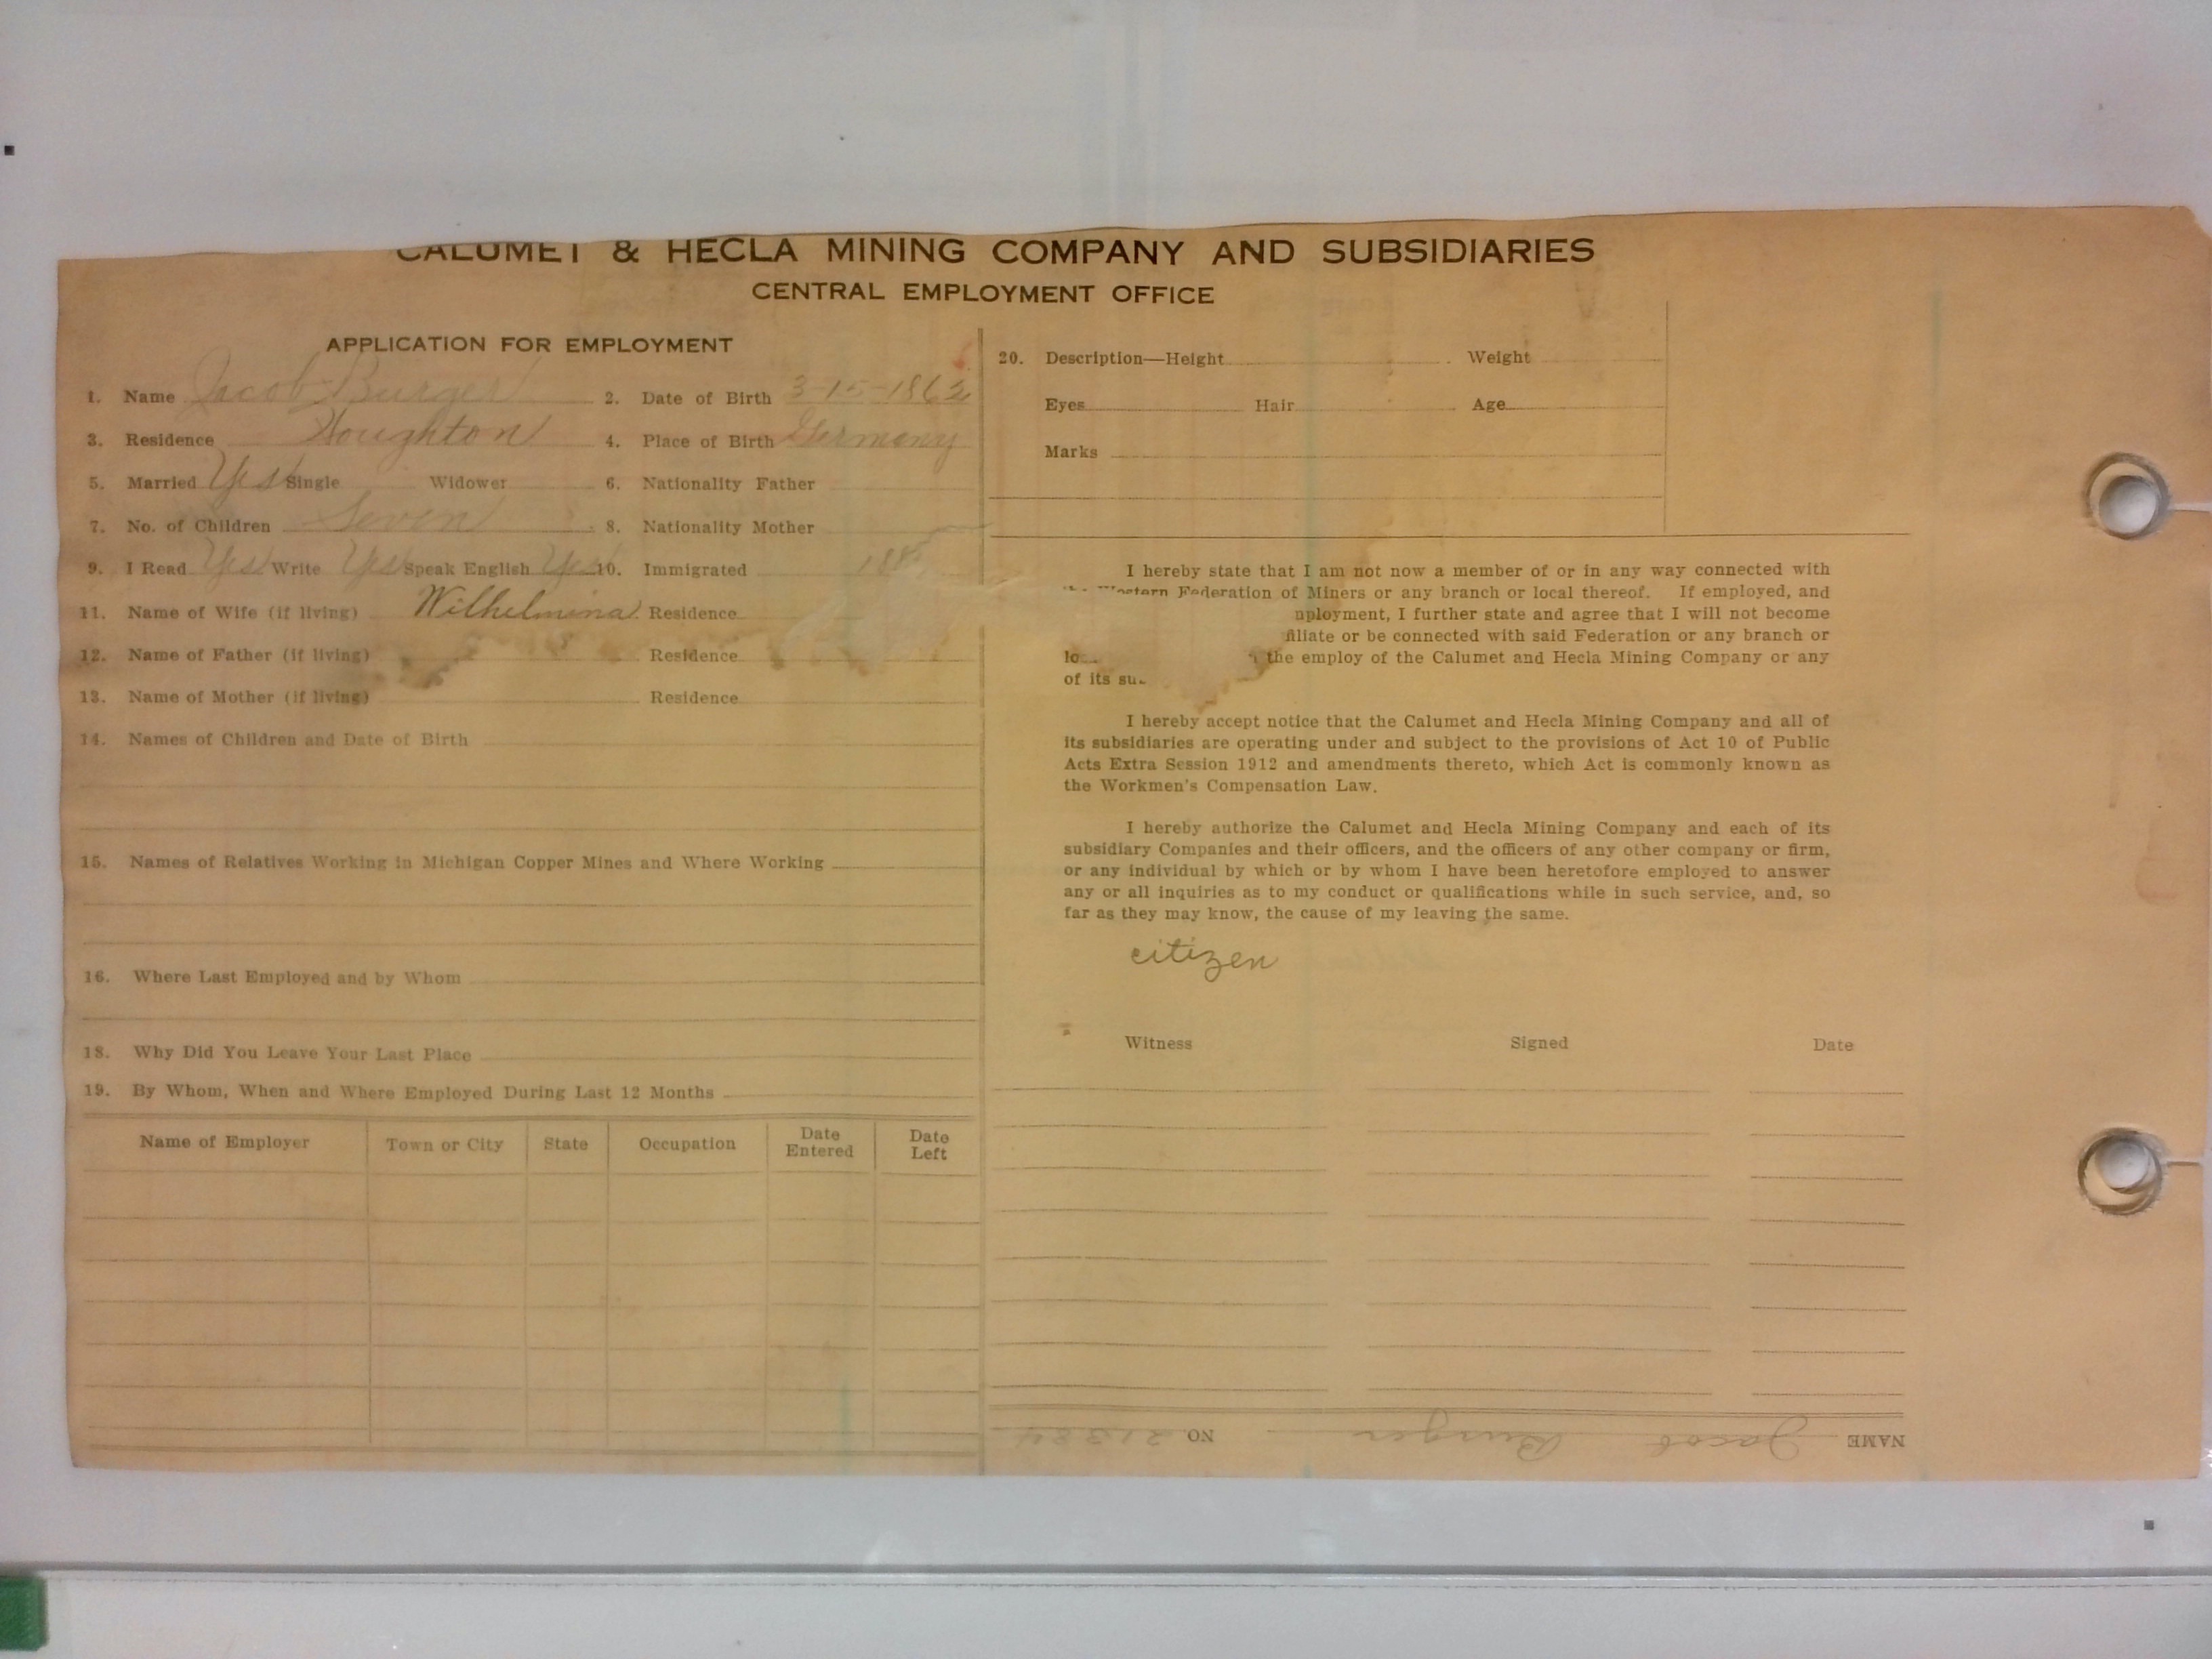 CALUMET & HECLA MINING COMPANY AND SUBSIDIARIES
CENTRAL EMPLOYMENT OFFICE
APPLICATION FOR EMPLOYMENT
1. Name Jacob Burger 2. Date of Birth 3-15-1862
3. Residence Houghton 4. Place of Birth Germany
5. Married Yes Single Widower 6. Nationality Father
7. No. of Children Seven 8. Nationality Mother
9. I Read Yes Write Yes Speak English Yes 10. Immigrated
11. Name of Wife (if living) Wilhelmina Residence
12. Name of Father (if living) Residence
13. Name of Mother (if living) Residence
14. Names of Children and Date of Birth
15. Names of Relatives Working in Michigan Copper Mines and Where Working
16. Where Last Employed and by Whom
18. Why Did You Leave Your Last Place
19. By Whom, When and Where Employed During Last 12 Months
Name of Employer Town or City State Occupation Date Entered Date Left
20. Description—Height Weight
Eyes Hair Age
Marks
I hereby state that I am not now a member of or in any way connected with
Federation of Miners or any branch or local thereof. If employed, and
nployment, I further state and agree that I will not become
filiate or be connected with said Federation or any branch or
lo the employ of the Calumet and Hecla Mining Company or any
of its su
I hereby accept notice that the Calumet and Hecla Mining Company and all of
its subsidiaries are operating under and subject to the provisions of Act 10 of Public
Acts Extra Session 1912 and amendments thereto, which Act is commonly known as
the Workmen's Compensation Law.
I hereby authorize the Calumet and Hecla Mining Company and each of its
subsidiary Companies and their officers, and the officers of any other company or firm,
or any individual by which or by whom I have been heretofore employed to answer
any or all inquiries as to my conduct or qualifications while in such service, and, so
far as they may know, the cause of my leaving the same.
citizen
Witness Signed Date
NAME Jacob Burger NO 21384